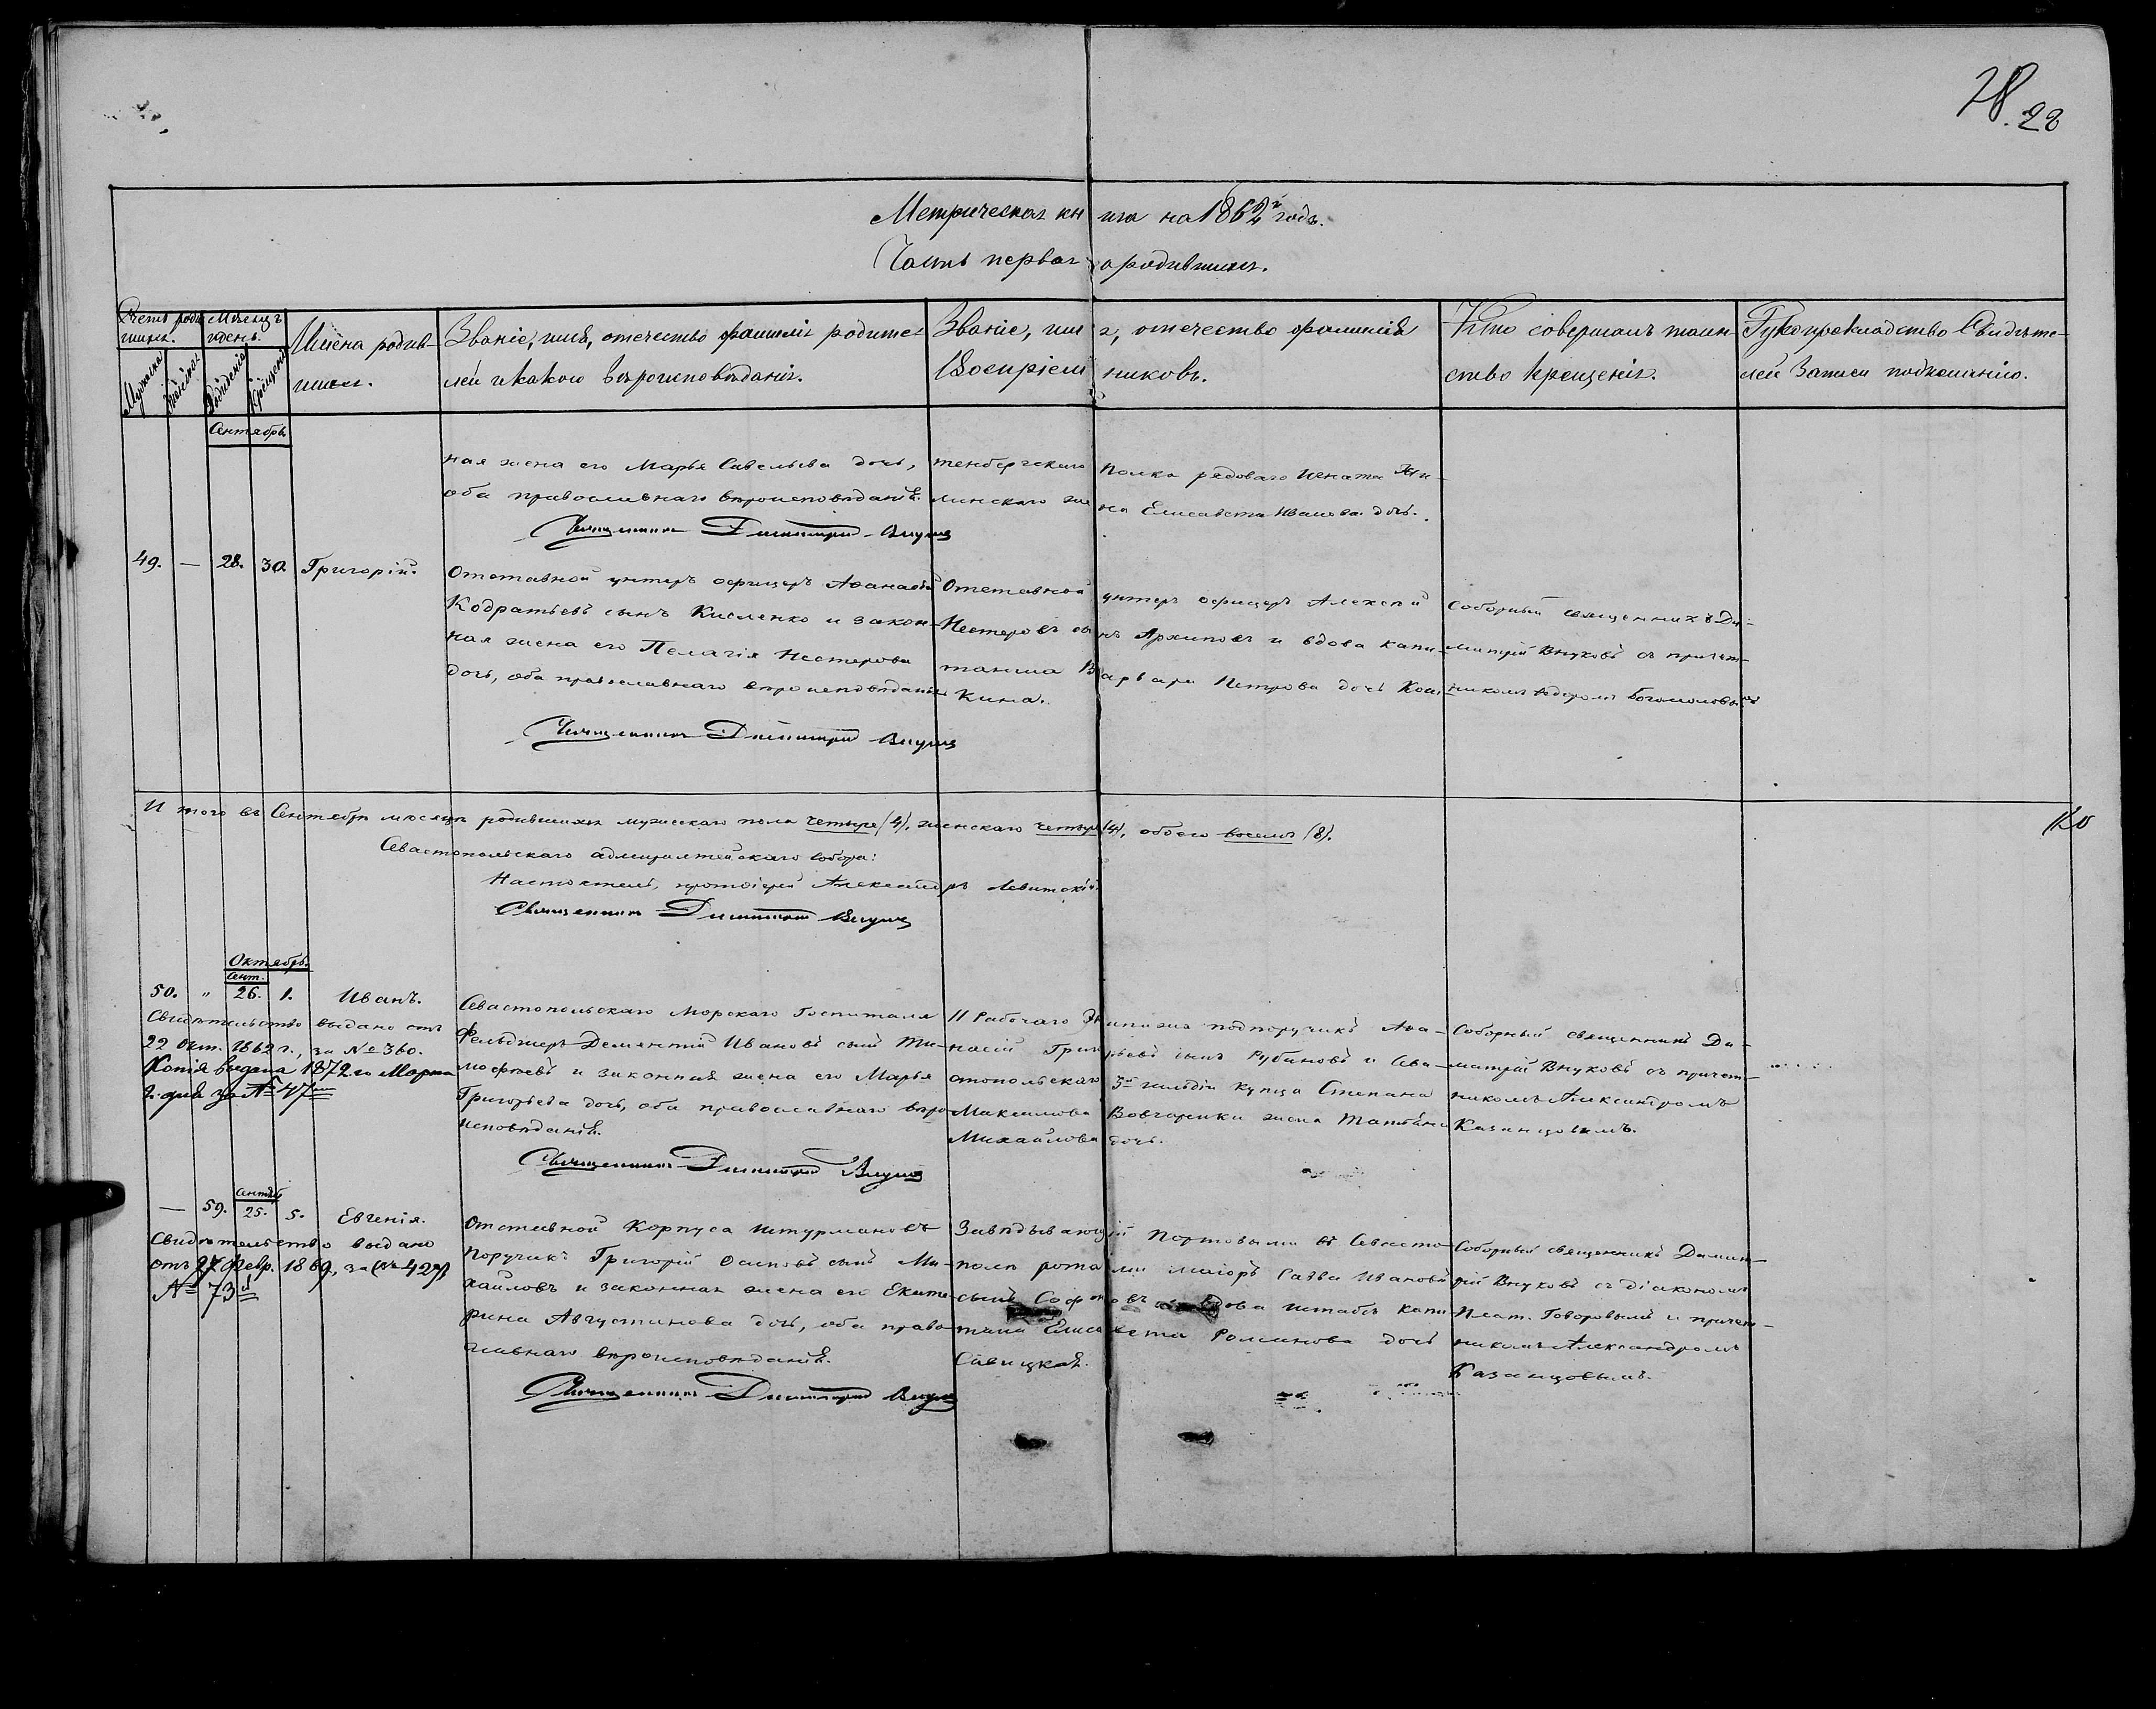 28
Метрическая книга на 1862й годъ.
Часть первая о родившихся.
Счетъ роди-
вшихся.
Мужеска
Женска
Мѣсяцъ
и день.
Рожденія
Крещенія
Имена родив-
шихся.
Званіе, имя, отечество фамилія родите-
лей и какого вѣроисповѣданія.
Званіе, имя, отечество фамилія
Воспріемниковъ.
Кто совершалъ таин-
ство крещенія.
Рукоприкладство Свидѣте-
лей Записи по желанію.
Сентябрь
ная жена его Марья Савельева дочь,
оба православнаго вѣроисповѣданія.
Священникъ Димитрій Внуковъ
тенбергскаго полка рядоваго Игната
линскаго жена Елисавета Иванова дочь.
49. — 28. 30. Григорій.
Отставной унтеръ офицеръ Аѳанасій
Кодратьевъ сынъ Кисленко и закон-
ная жена его Пелагія Нестерова
дочь, оба православнаго вѣроисповѣданія.
Священникъ Димитрій Внуковъ
Отставной унтеръ офицеръ Алексѣй
Нестеровъ сынъ Архиповъ и вдова капи-
танша Варвара Петрова дочь Кош-
кина.
Соборный священникъ Ди-
митрій Внуковъ съ причет-
никомъ Ѳедоромъ Богомоловымъ
И того въ Сентябрѣ мѣсяцѣ родившихся мужескаго пола четыре (4), женскаго четыре (4), обоего восемь (8).
Севастопольскаго адмиралтейскаго собора:
Настоятель, протоіерей Александръ Левитскій.
Священникъ Димитрій Внуковъ
Октябрь.
Сент.
50. „ 26. 1. Иванъ.
Свидѣтельство выдано отъ
22 Окт. 1862 г., за № 360.
Копія выдана 1872 го Марта
2 дня за № 47
Севастопольскаго Морскаго Госпиталя
Фельдшеръ Дементій Ивановъ сынъ Ти-
мофѣевъ и законная жена его Марья
Григорьева дочь, оба православнаго вѣро-
исповѣданія.
Священникъ Димитрій Внуковъ
11 Рабочаго Экипажа подпоручикъ Аѳа-
насій Григорьевъ сынъ Рубановъ и Сева-
стопольскаго 3й гильдіи купца Степана
Максимова Вовчаренки жена Татьяна
Михайлова дочь.
Соборный священникъ Ди-
митрій Внуковъ съ причет-
никомъ Александромъ
Казанцовымъ.
Сентяб.
— 59. 25. 5. Евгенія.
Свидѣтельство выдано
отъ 27 Февр. 1869, за
№ 73й
Отставной Корпуса штурмановъ
поручикъ Григорій Осиповъ сынъ Ми-
хайловъ и законная жена его Екате-
рина Августинова дочь, оба право-
славнаго вѣроисповѣданія.
Священникъ Димитрій Внуковъ
Завѣдывающій портовыми въ Севасто-
полѣ ротами маіоръ Савва Ивановъ
сынъ Софоновъ и вдова штабсъ капи-
танша Елисавета Романова дочь
Савицкая.
Соборный священникъ Димит-
рій Внуковъ съ діакономъ
Плат. Говоровымъ и причет-
никомъ Александромъ
Казанцовымъ.